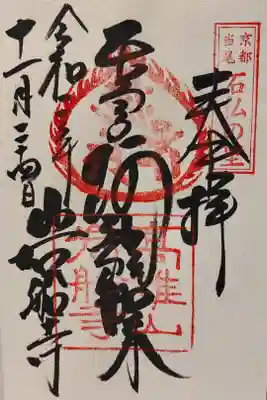 京都
当尾
石仏の里
奉拝
阿弥陀如来
高雄山
岩船寺
令和 年
十一月二四日
岩船寺